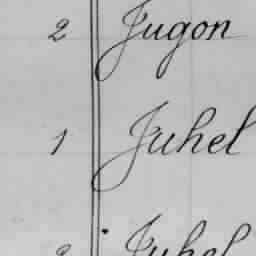 2 Jugon
1 Juhel
2 Juhel